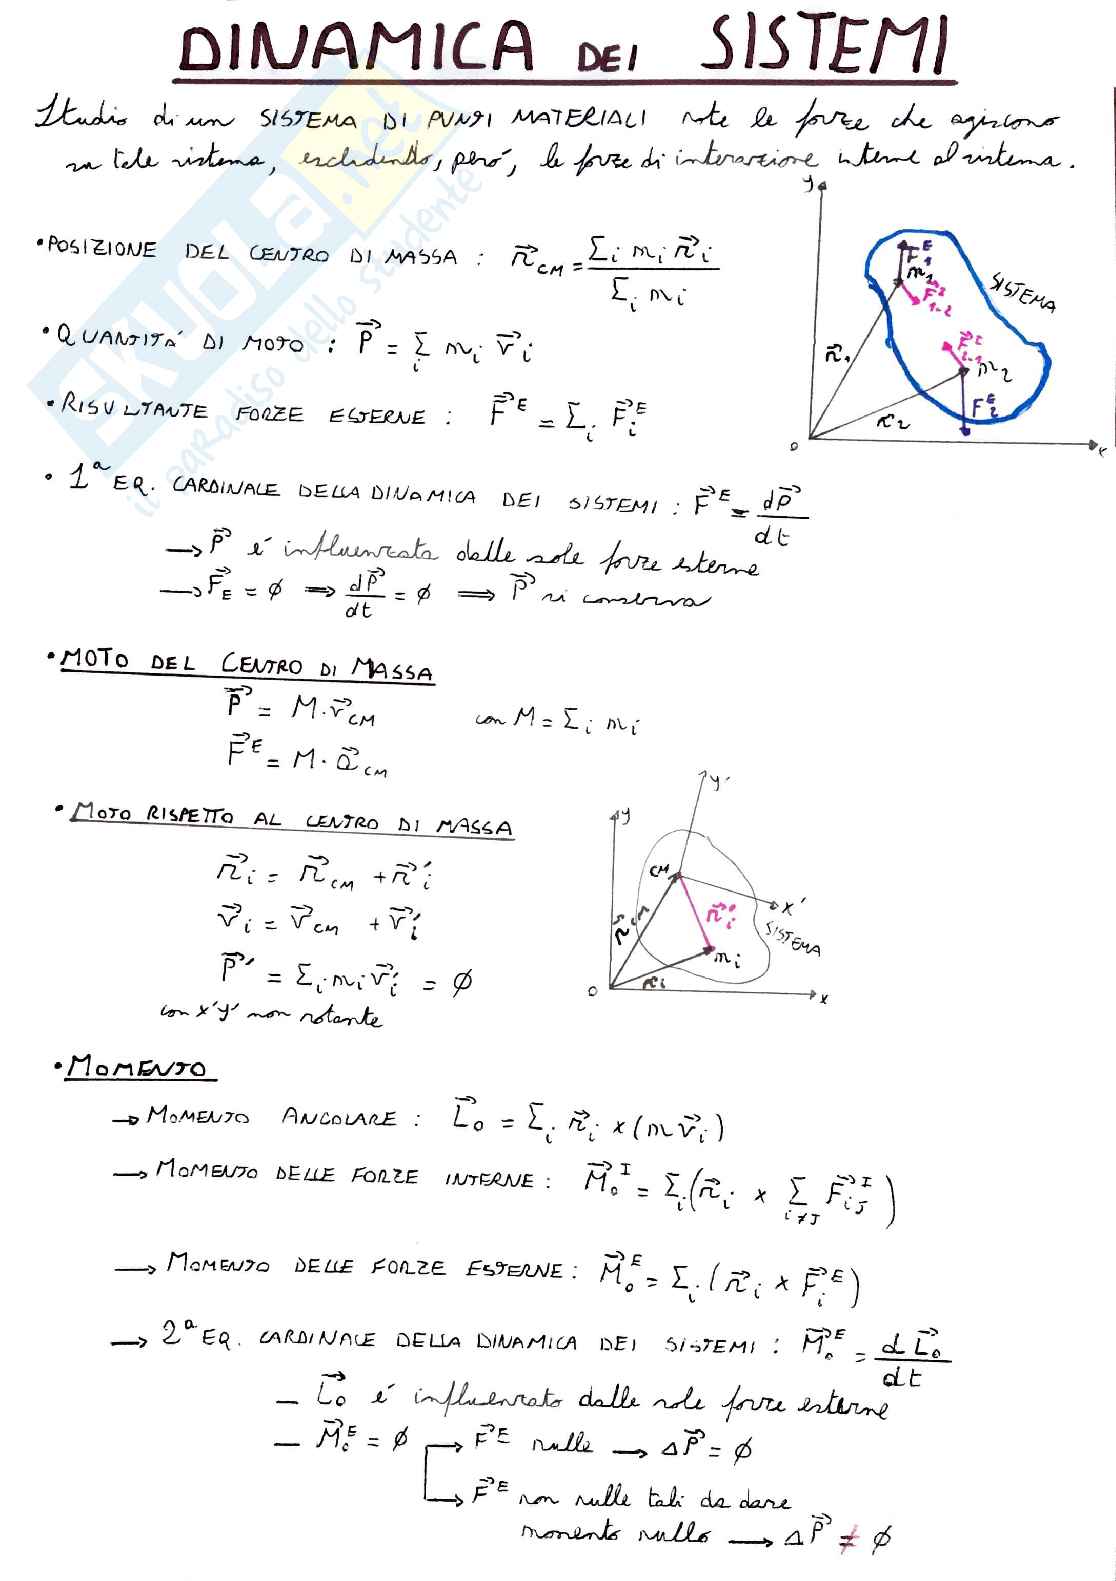 DINAMICA DEI SISTEMI
Studio di un SISTEMA DI PUNTI MATERIALI note le forze che agiscono
su tale sistema, escludendo, però, le forze di interazione interne al sistema.
• POSIZIONE DEL CENTRO DI MASSA : r⃗_CM = Σ_i m_i r⃗_i / Σ_i m_i
• QUANTITÁ DI MOTO : P⃗ = Σ_i m_i v⃗_i
• RISULTANTE FORZE ESTERNE : F⃗^E = Σ_i F⃗_i^E
y
F⃗_1^E
m_1
F⃗_1-2^I
SISTEMA
F⃗_2-1^I
m_2
F_2^E
r⃗_1
r⃗_2
O
x
• 1ª EQ. CARDINALE DELLA DINAMICA DEI SISTEMI : F⃗^E = dP⃗/dt
→ P⃗ é influenzata dalle sole forze esterne
→ F⃗_E = ∅ ⇒ dP⃗/dt = ∅ ⇒ P⃗ si conserva
• MOTO DEL CENTRO DI MASSA
P⃗ = M · v⃗_CM con M = Σ_i m_i
F⃗^E = M · a⃗_CM
• MOTO RISPETTO AL CENTRO DI MASSA
r⃗_i = r⃗_CM + r⃗'_i
v⃗_i = v⃗_CM + v⃗'_i
P⃗' = Σ_i m_i v⃗'_i = ∅
con x'y' non rotante
y
y'
CM
x'
r⃗_CM
r⃗'_i
SISTEMA
m_i
r_i
O
x
• MOMENTO
→ MOMENTO ANGOLARE : L⃗_O = Σ_i r⃗_i × (m v⃗_i)
→ MOMENTO DELLE FORZE INTERNE : M⃗_O^I = Σ_i (r⃗_i × Σ_i≠J F⃗_iJ^I)
→ MOMENTO DELLE FORZE ESTERNE : M⃗_O^E = Σ_i (r⃗_i × F⃗_i^E)
→ 2ª EQ. CARDINALE DELLA DINAMICA DEI SISTEMI : M⃗_O^E = dL⃗_O/dt
– L⃗_O é influenzato dalle sole forze esterne
– M⃗_O^E = ∅ → F⃗^E nulle → ΔP⃗ = ∅
→ F⃗^E non nulle tali da dare
momento nullo → ΔP⃗ ≠ ∅
SKUOLA.net
il paradiso dello studente